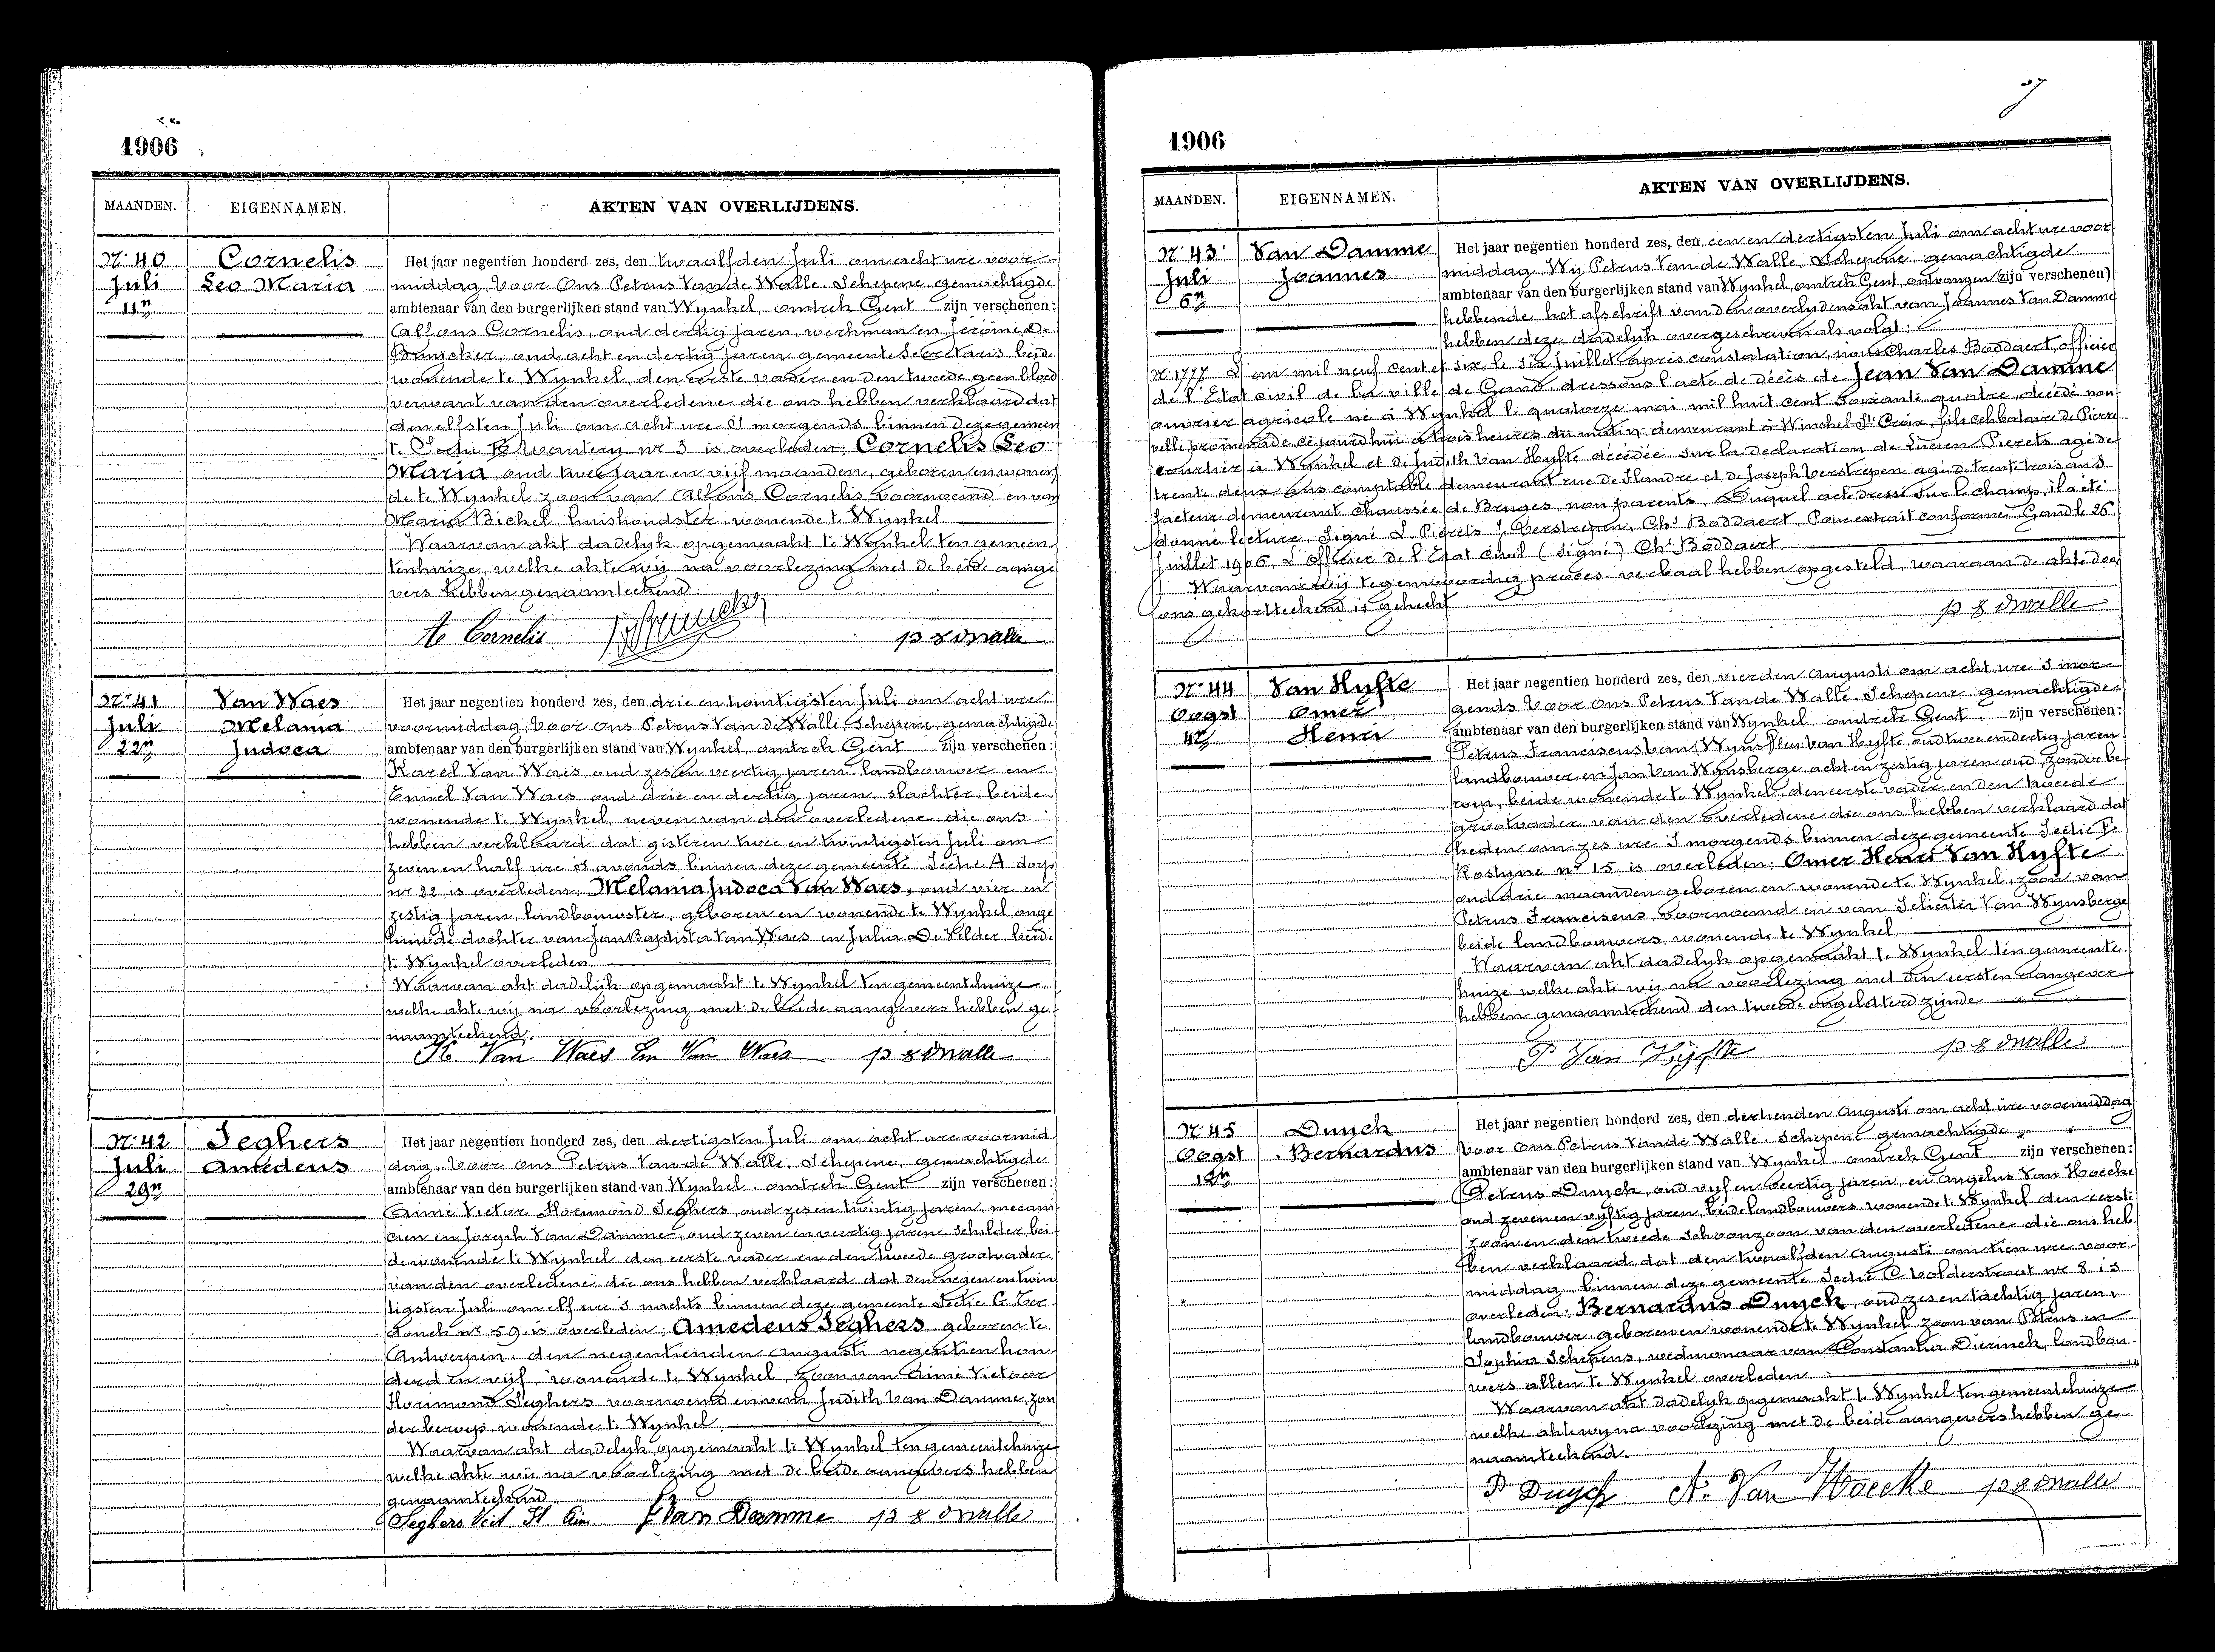 1906
MAANDEN. EIGENNAMEN. AKTEN VAN OVERLIJDENS.
Nr 40 Juli 11n
Cornelis Leo Maria
Het jaar negentien honderd zes, den twaalfden Juli om acht ure voor-
middag, voor Ons Petrus Van de Walle, Schepene, gemachtigde
ambtenaar van den burgerlijken stand van Wynkel, omtrek Gent zijn verschenen:
Alfons Cornelis, oud dertig jaren, werkman en Jerôme De
Bruycker, oud acht en dertig jaren gemeente Secretaris, beide
wonende te Wynkel, den eerste vader en den tweede geen bloed
verwant van den overledene die ons hebben verklaard dat
den elfsten Juli om acht ure 's morgends binnen deze gemeen
te Sectie B nr 3 is overleden: Cornelis Leo
Maria, oud twee jaar en vijf maanden, geboren en wonen
de te Wynkel zoon van Alfons Cornelis voornoemd en van
Maria Bickel, huishoudster, wonende te Wynkel
Waarvan akt dadelyk opgemaakt te Wynkel ten gemeen
tenhuize, welke akte wij na voorlezing met de beide aange
vers hebben genaamteekend.
A Cornelis
Nr 41 Juli 22n
Van Waes Melania Judoca
Het jaar negentien honderd zes, den drie en twintigsten Juli om acht ure
voormiddag, voor Ons Petrus Van de Walle, Schepene, gemachtigde
ambtenaar van den burgerlijken stand van Wynkel, omtrek Gent zijn verschenen:
Karel Van Waes oud zes en veertig jaren landbouwer en
Emiel Van Waes oud drie en dertig jaren, slachter, beide
wonende te Wynkel, neven van den overledene, die ons
hebben verklaard dat gisteren twee en twintigsten Juli om
zeven en half ure 's avonds binnen deze gemeente Sectie A dorp
nr 22 is overleden: Melania Judoca Van Waes, oud vier en
zestig jaren, landbouwster, geboren en wonende te Wynkel onge
huwde dochter van Jan Baptista Van Waes en Julia De Vilder, beide
te Wynkel overleden
Waarvan akt dadelijk opgemaakt te Wynkel ten gemeentehuize
welke akte wij na voorlezing met de beide aangevers hebben ge
naamteekend.
K Van Waes Em Van Waes
Nr 42 Juli 29n
Seghers Amedeus
Het jaar negentien honderd zes, den dertigsten Juli om acht ure voormid
dag, voor ons Petrus Van de Walle, Schepene, gemachtigde
ambtenaar van den burgerlijken stand van Wynkel, omtrek Gent zijn verschenen:
Aimé Victor Florimond Seghers, oud zes en twintig jaren mecani
cien en Joseph Van Damme, oud zeven en veertig jaren, Schilder, bei
de wonende te Wynkel den eerste vader en den tweede grootvader
van den overledene die ons hebben verklaard dat den negen en twin
tigsten Juli om elf ure 's nachts binnen deze gemeente Sectie C Ter
donck nr 59 is overleden: Amedeus Seghers geboren te
Antwerpen, den negentienden augusti negentien hon
derd en vijf, wonende te Wynkel, zoon van Aimé Victoor
Florimond Seghers voornoemd en van Judith Van Damme, zon
der beroep, wonende te Wynkel
Waarvan akt dadelyk opgemaakt te Wynkel ten gemeentehuize
welke akte wij na voorlezing met de beide aangevers hebben
genaamteekend
Seghers Vict. Fl. J Van Damme
1906
MAANDEN. EIGENNAMEN. AKTEN VAN OVERLIJDENS.
Nr 43 Juli 6n
Van Damme Joannes
Het jaar negentien honderd zes, den een en dertigsten Juli om acht ure voor
middag Wij Petrus Van de Walle, Schepene, gemachtigde
ambtenaar van den burgerlijken stand van Wynkel, omtrek Gent, ontvangen (zijn verschenen)
hebbende het afschrift van den overlydensakt van Joannes Van Damme
hebben deze dadelyk overgeschreven als volgt:
Nr 1777 L'an mil neuf cent et six le six Juillet après constatation, nous Charles Boddaert, officier
de l'Etat civil de la ville de Gand, dressons l'acte de décès de Jean Van Damme
ouvrier agricole né à Wynkel le quatorze mai mil huit cent soixante quatre, décédé non
ville promenade ce jourdhui à trois heures du matin, demeurant à Winckel Ste Croix, fils celibataire de Pierre
à Wynkel et de Judith Van Hyfte décédée. Sur la declaration de Lucien Pierets agé de
trente deux ans comptable demeurant rue de Flandre et de Joseph Verstrepen agé de trente trois ans
facteur demeurant chaussée de Bruges, non parents. Duquel acte dressé sur le champ, il a été
donné lecture. Signé L Pierets, J. Verstrepen, Chs Boddaert. Pour extrait conforme Gand le 26
Juillet 1906 L'Officier de l'Etat civil (signé) Chs Boddaert
Waarvan wij tegenwoordig proces-verbaal hebben opgesteld, waaraan de akte door
ons gekortteekend is gehecht
Nr 44 Oogst 4n
Van Hyfte Omer Henri
Het jaar negentien honderd zes, den vierden Augusti om acht ure 's mor-
gends voor Ons Petrus Van de Walle, Schepene gemachtigde
ambtenaar van den burgerlijken stand van Wynkel omtrek Gent, zijn verschenen:
Petrus Franciscus Van Hyfte oud twee en dertig jaren
landbouwer en Jan Van Wynsberge acht en zestig jaren oud, zonder be
roep, beide wonende te Wynkel, den eerste vader en den tweede
grootvader van den overledene die ons hebben verklaard dat
heden om zes ure 's morgends, binnen deze gemeente Sectie F
Kostyne nr 15 is overleden: Omer Henri Van Hyfte
oud drie maanden geboren en wonende te Wynkel, zoon van
Petrus Franciscus, voornoemd en van Felicita Van Wynsberge
beide landbouwers, wonende te Wynkel
Waarvan akt dadelyk opgemaakt te Wynkel ten gemeente
huize welke akte wij na voorlezing met den eersten aangever
hebben genaamteekend den tweede ongeletterd zijnde
P Van Hyfte
Nr 45 Oogst 12n
Duyck Bernardus
Het jaar negentien honderd zes, den dertienden Augusti om acht ure voormiddag
Voor Ons Petrus Van de Walle, Schepene gemachtigde
ambtenaar van den burgerlijken stand van Wynkel omtrek Gent zijn verschenen:
Petrus Duyck, oud vyf en veertig jaren, en Angelus Van Hoecke
oud zeven en vijftig jaren, beide landbouwers, wonende te Wynkel den eerste
zoon en den tweede schoonzoon van den overledene die ons heb
ben verklaard dat den twaalfden Augusti om tien ure voor-
middag binnen deze gemeente Sectie C Volderstraat nr 8 is
overleden: Bernardus Duyck, oud zes en tachtig jaren,
landbouwer, geboren en wonende te Wynkel zoon van Petrus en
Sophia Schepens, weduwnaar van Constantia Dierinck, landbou-
wers allen te Wynkel overleden
Waarvan akt dadelyk opgemaakt te Wynkel ten gemeentehuize
welke akte wij na voorlezing met de beide aangevers hebben ge-
naamteekend.
P Duyck A. Van Hoecke